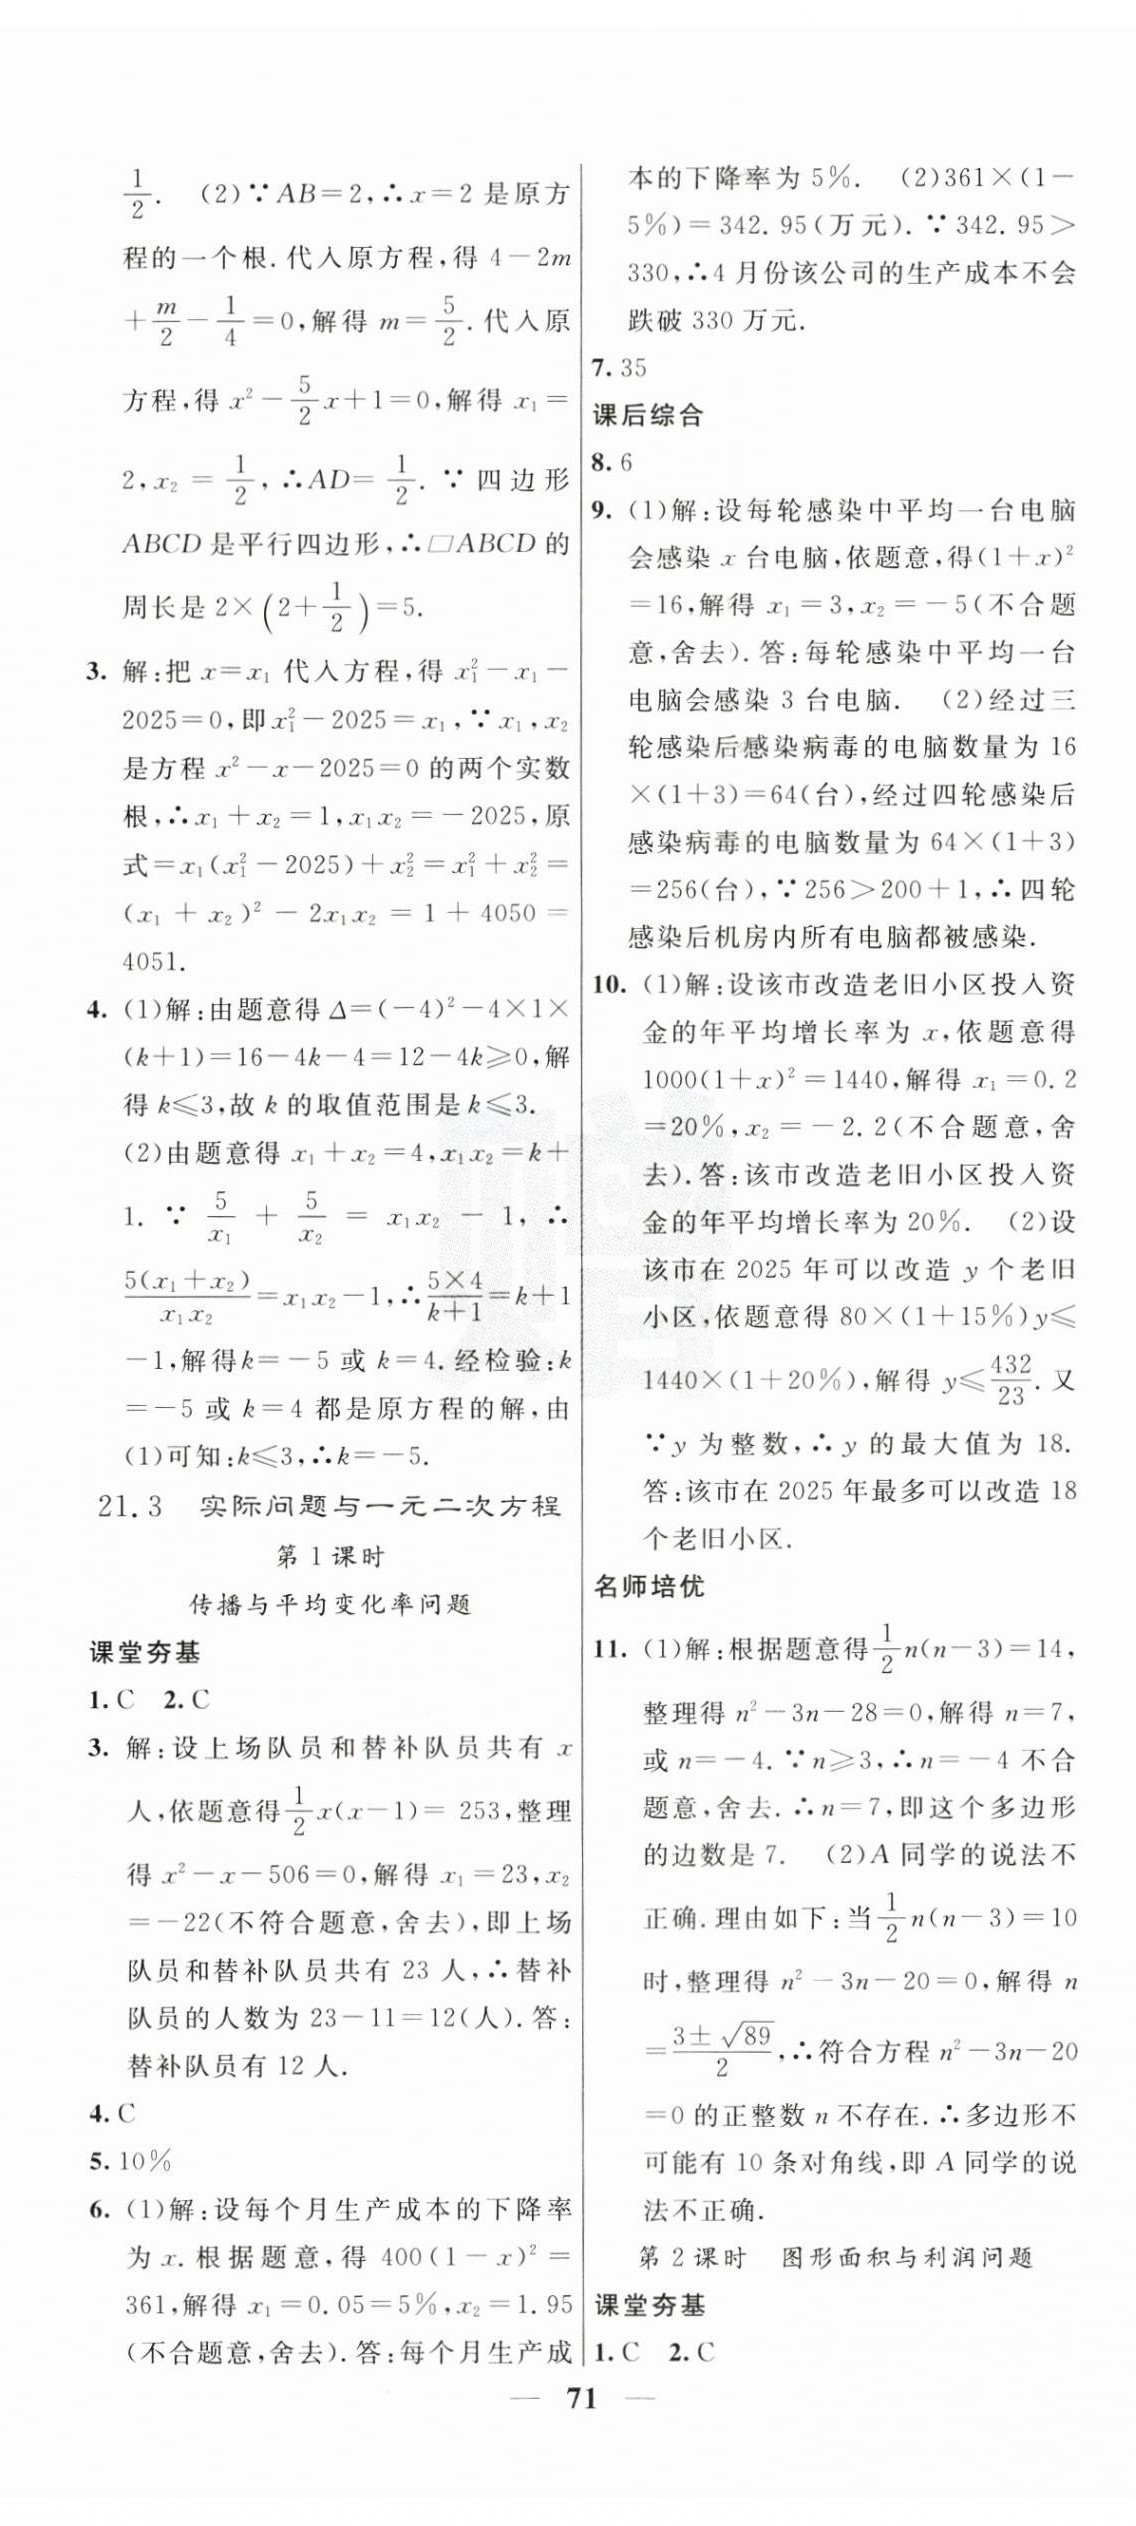 1/2. (2)∵AB=2,∴x=2 是原方
程的一个根.代入原方程,得 4-2m
+m/2-1/4=0,解得 m=5/2.代入原
方程,得 x²-5/2x+1=0,解得 x₁=
2,x₂=1/2,∴AD=1/2.∵四边形
ABCD 是平行四边形,∴□ABCD 的
周长是 2×(2+1/2)=5.
3. 解:把 x=x₁ 代入方程,得 x₁²-x₁-
2025=0,即x₁²-2025=x₁,∵x₁,x₂
是方程 x²-x-2025=0 的两个实数
根,∴x₁+x₂=1,x₁x₂=-2025,原
式=x₁(x₁²-2025)+x₂²=x₁²+x₂²=
(x₁+x₂)²-2x₁x₂=1+4050=
4051.
4. (1)解:由题意得 Δ=(-4)²-4×1×
(k+1)=16-4k-4=12-4k≥0,解
得 k≤3,故 k 的取值范围是 k≤3.
(2)由题意得 x₁+x₂=4,x₁x₂=k+
1. ∵ 5/x₁ + 5/x₂ = x₁x₂ - 1, ∴
5(x₁+x₂)/x₁x₂=x₁x₂-1,∴5×4/k+1=k+1
-1,解得k=-5 或 k=4.经检验:k
=-5 或 k=4 都是原方程的解,由
(1)可知:k≤3,∴k=-5.
21.3 实际问题与一元二次方程
第 1 课时
传播与平均变化率问题
课堂夯基
1. C 2. C
3. 解:设上场队员和替补队员共有 x
人,依题意得1/2x(x-1)= 253,整理
得 x²-x-506=0,解得 x₁=23,x₂
=-22(不符合题意,舍去),即上场
队员和替补队员共有 23 人,∴替补
队员的人数为 23-11=12(人).答:
替补队员有 12 人.
4. C
5. 10%
6. (1)解:设每个月生产成本的下降率
为 x.根据题意,得 400(1-x)²=
361,解得 x₁=0.05=5%,x₂=1.95
(不合题意,舍去).答:每个月生产成
本的下降率为 5%. (2)361×(1-
5%)=342.95(万元).∵342.95>
330,∴4 月份该公司的生产成本不会
跌破 330 万元.
7. 35
课后综合
8. 6
9. (1)解:设每轮感染中平均一台电脑
会感染 x 台电脑,依题意,得(1+x)²
=16,解得 x₁=3,x₂=-5(不合题
意,舍去).答:每轮感染中平均一台
电脑会感染 3 台电脑. (2)经过三
轮感染后感染病毒的电脑数量为 16
×(1+3)=64(台),经过四轮感染后
感染病毒的电脑数量为 64×(1+3)
=256(台),∵256>200+1,∴四轮
感染后机房内所有电脑都被感染.
10. (1)解:设该市改造老旧小区投入资
金的年平均增长率为 x,依题意得
1000(1+x)²=1440,解得 x₁=0.2
=20%,x₂=-2.2(不合题意,舍
去).答:该市改造老旧小区投入资
金的年平均增长率为 20%. (2)设
该市在 2025 年可以改造 y 个老旧
小区,依题意得 80×(1+15%)y≤
1440×(1+20%),解得 y≤432/23.又
∵y 为整数,∴y 的最大值为 18.
答:该市在 2025 年最多可以改造 18
个老旧小区.
名师培优
11. (1)解:根据题意得1/2n(n-3)=14,
整理得 n²-3n-28=0,解得 n=7,
或 n=-4.∵n≥3,∴n=-4 不合
题意,舍去.∴n=7,即这个多边形
的边数是 7. (2)A 同学的说法不
正确.理由如下:当1/2n(n-3)=10
时,整理得 n²-3n-20=0,解得 n
=3±√89/2,∴符合方程 n²-3n-20
=0 的正整数 n 不存在.∴多边形不
可能有 10 条对角线,即 A 同学的说
法不正确.
第 2 课时 图形面积与利润问题
课堂夯基
1. C 2. C
— 71 —